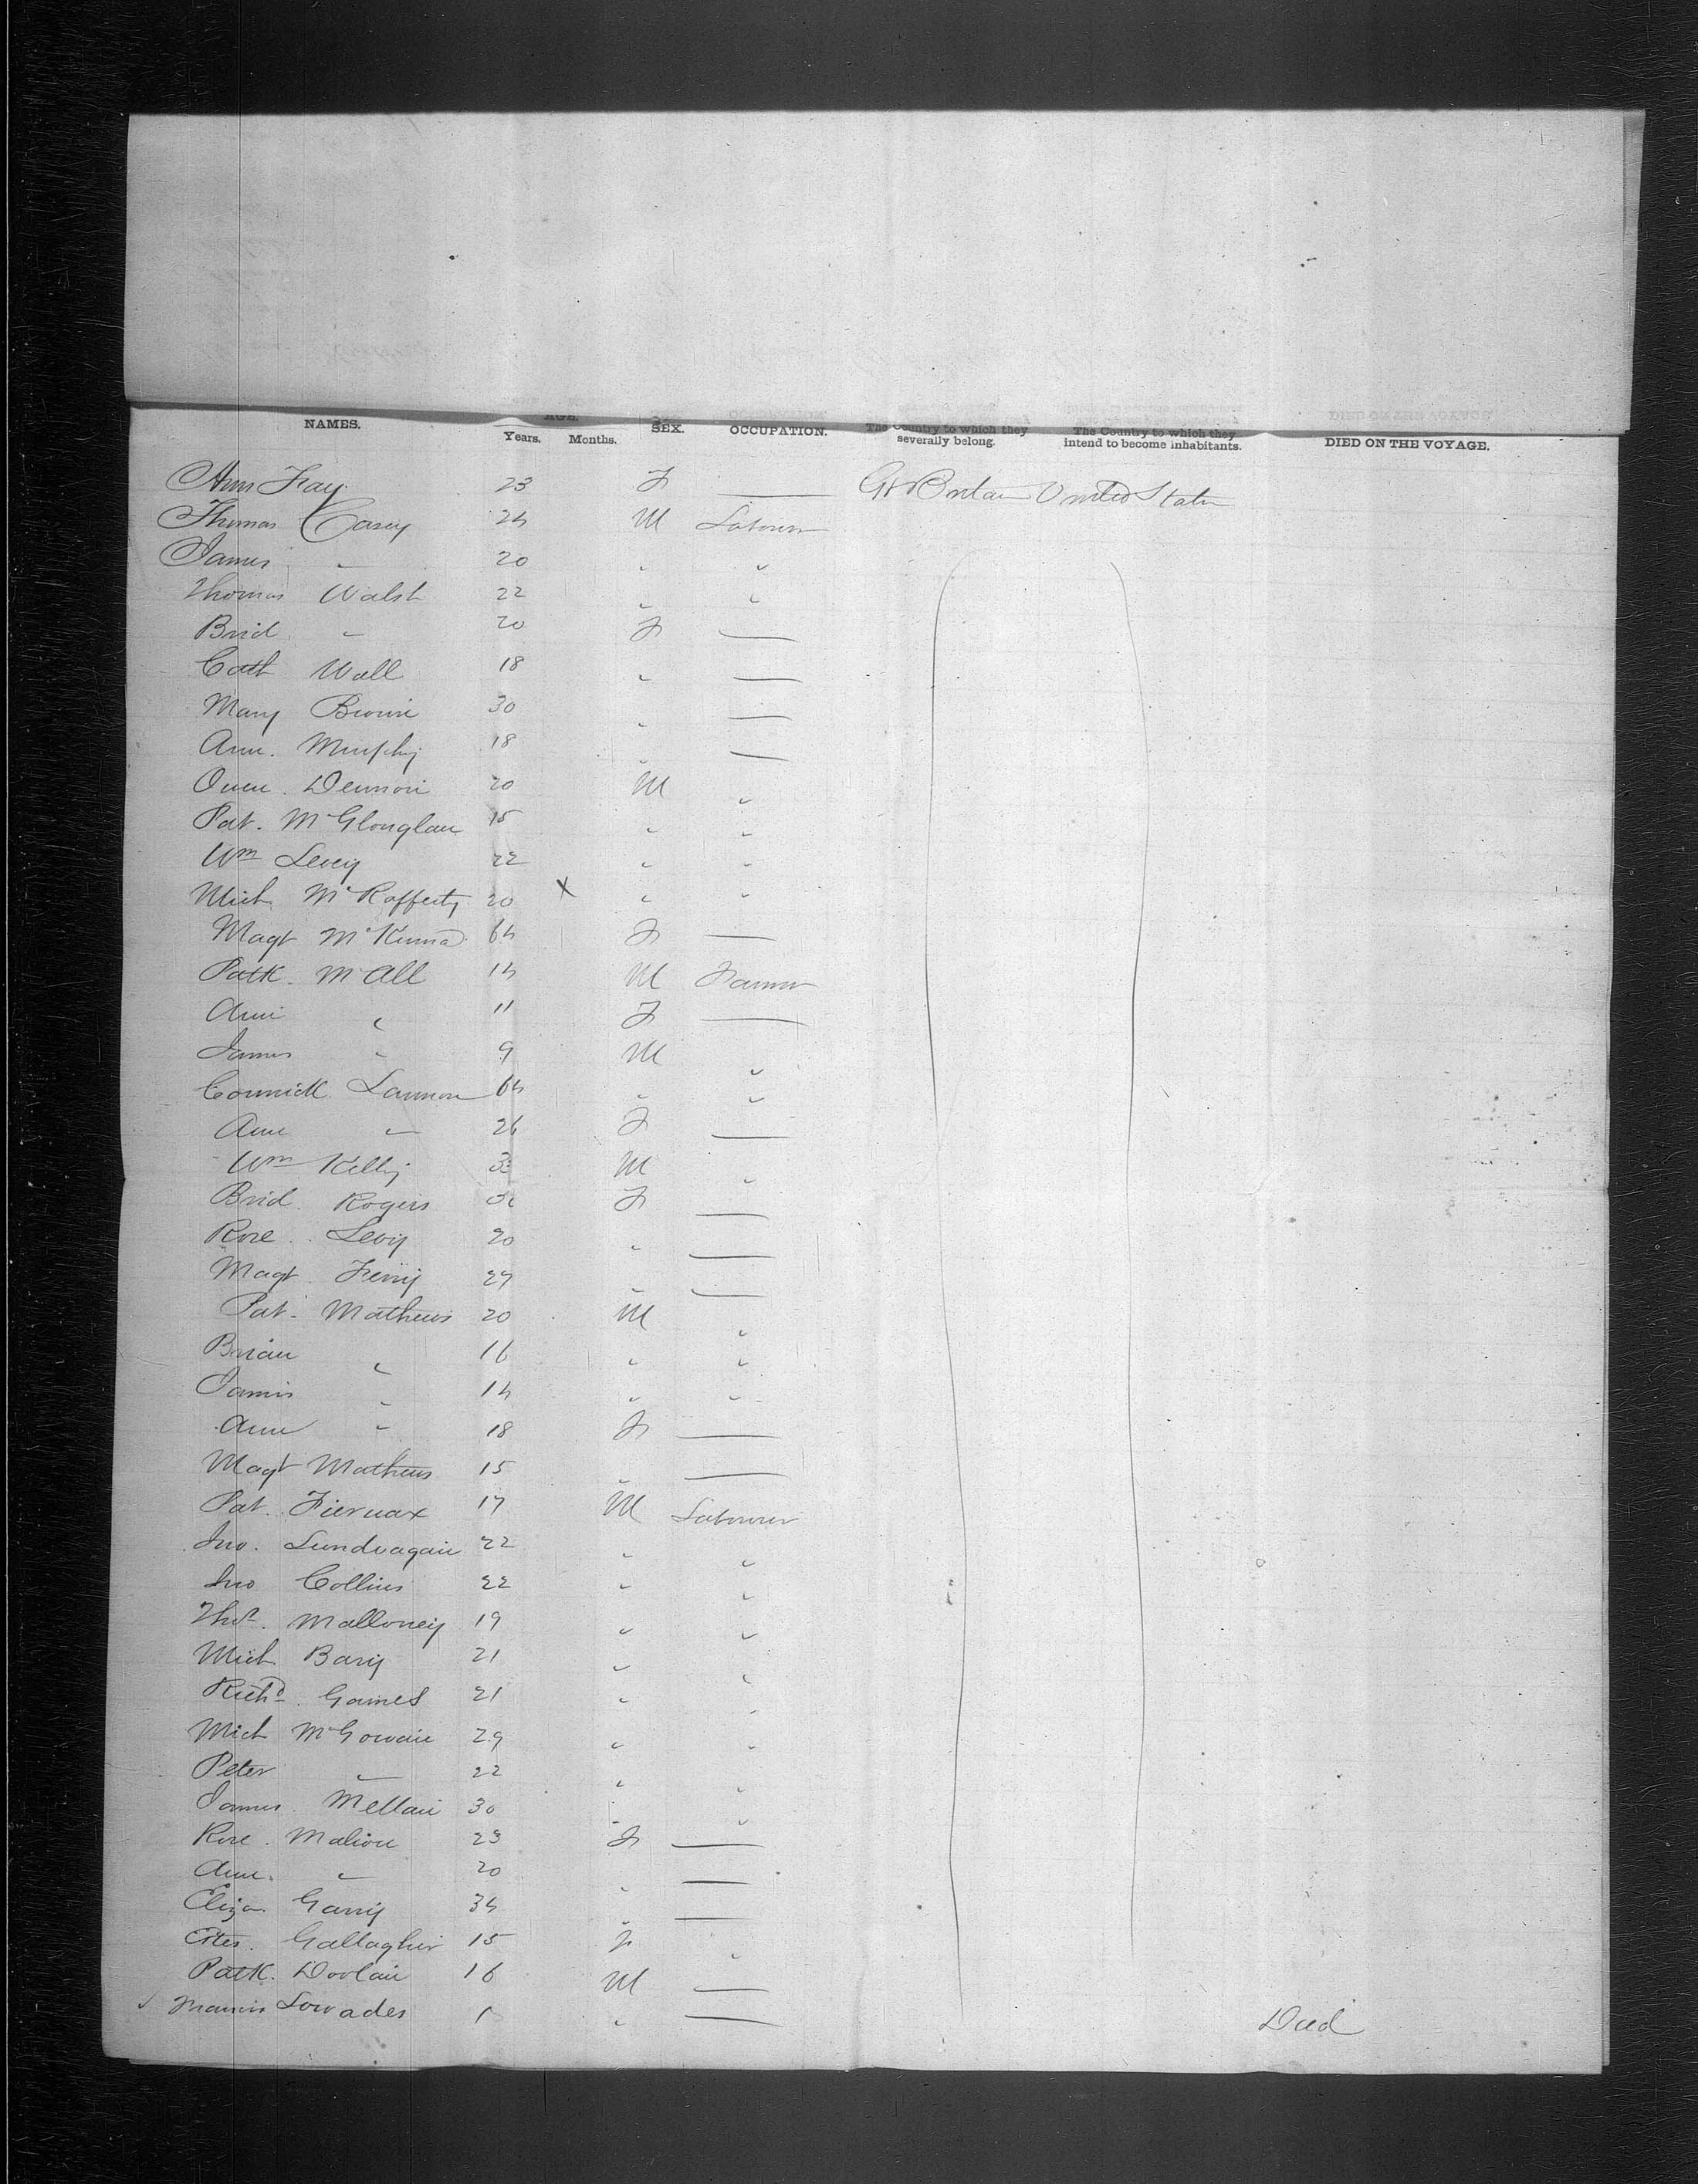 NAMES. AGE. SEX. OCCUPATION. The Country to which they severally belong. The Country to which they intend to become inhabitants. DIED ON THE VOYAGE.
Years. Months.
Ann 23 F — Gt Britain United States
Thomas Casey 24 M Labourer
James " 20 " "
Thomas Walsh 22 " "
Brid " 20 F —
Cath Wall 18 " —
Mary Brown 30 " —
Ann. Murphy 18 " —
Owen. Dennon 20 M "
Pat. McGlonglan 15 " "
Wm Levy 22 " "
Mich McRafferty 20 X " "
Magt 64 F —
Patk. McAll 14 M Farmer
Ann " 11 F —
James " 9 M "
Cormick Lannon 64 " "
Ann " 26 F —
Wm Kelly M "
Brid. Rogers F —
Rose. Levy 20 " —
Magt. 27 " —
Pat. Mathews 20 M "
Brian " 16 " "
James " 14 " "
Ann " 18 F —
Magt Mathews 15 " —
Pat. 17 M Labourer
Jno. 22 " "
Jno Collins 22 " "
Thos. Malloney 19 " "
Mich Bary 21 " "
Richd. Games 21 " "
Mich McGowan 29 " "
Peter " 22 " "
James. Mellan 30 " "
Rose. Malion 23 F —
Ann. " 20 " —
Eliza. Garry 34 " —
Gallagher 15 F "
Patk. Doolan 16 M —
Francis Lowades 1 " — Died